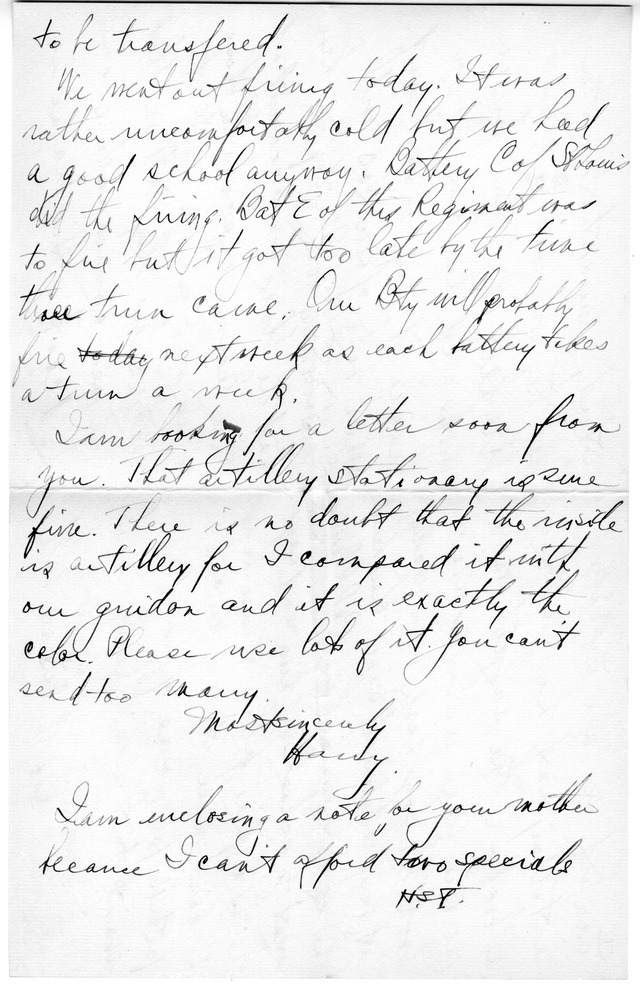 to be transfered.
We went out firing today. It was
rather uncomfortably cold but we had
a good school anyway. Battery C of St Louis
did the firing. Bat E of this Regiment was
to fire but it got too late by the time
their turn came. Our Bty will probably
fire today next week as each battery takes
a turn a week.
I am looking for a letter soon from
you. That artillery stationary is sure
fine. There is no doubt that the inside
is artillery for I compared it with
our guidon and it is exactly the
color. Please use lots of it. You can't
send too many.
Most sincerely
Harry
I am enclosing a note for your mother
because I can't afford two specials
H.S.T.